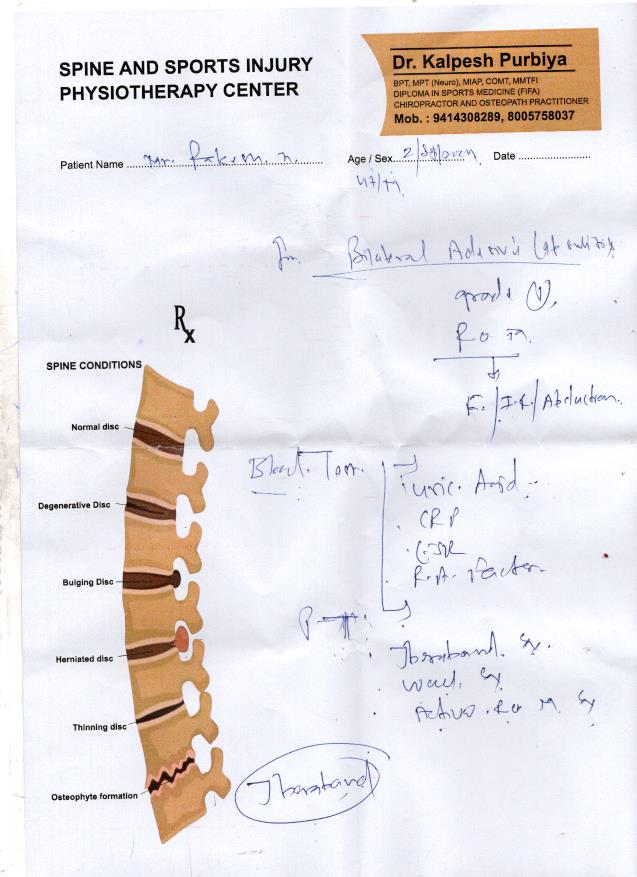 SPINE AND SPORTS INJURY
PHYSIOTHERAPY CENTER
Dr. Kalpesh Purbiya
BPT, MPT (Neuro), MIAP, COMT, MMTFI
DIPLOMA IN SPORTS MEDICINE (FIFA)
CHIROPRACTOR AND OSTEOPATH PRACTITIONER
Mob. : 9414308289, 8005758037
Patient Name Mr.
Age / Sex
Date
Bilateral
grade
R.o.M.
Abduction.
Rx
SPINE CONDITIONS
Normal disc
Degenerative Disc
Bulging Disc
Herniated disc
Thinning disc
Osteophyte formation
Blood Test.
Uric. Acid
CRP
ESR
R.A. Factor
Theraband. Ex.
Wall. Ex
Active R.o.M. Ex
Theraband